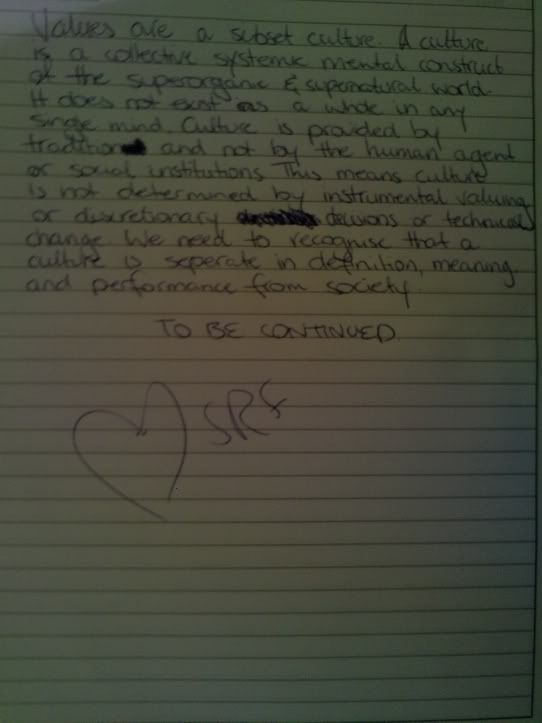 Values are a subset culture. A culture
is a collective systemic mental construct
of the superorganic & supernatural world.
It does not exist as a whole in any
single mind. Culture is provided by
tradition and not by the human agent
or social institutions. This means culture
is not determined by instrumental valuing
or discretionary decisions or technical
change. We need to recognise that a
culture is seperate in definition, meaning,
and performance from society.
TO BE CONTINUED